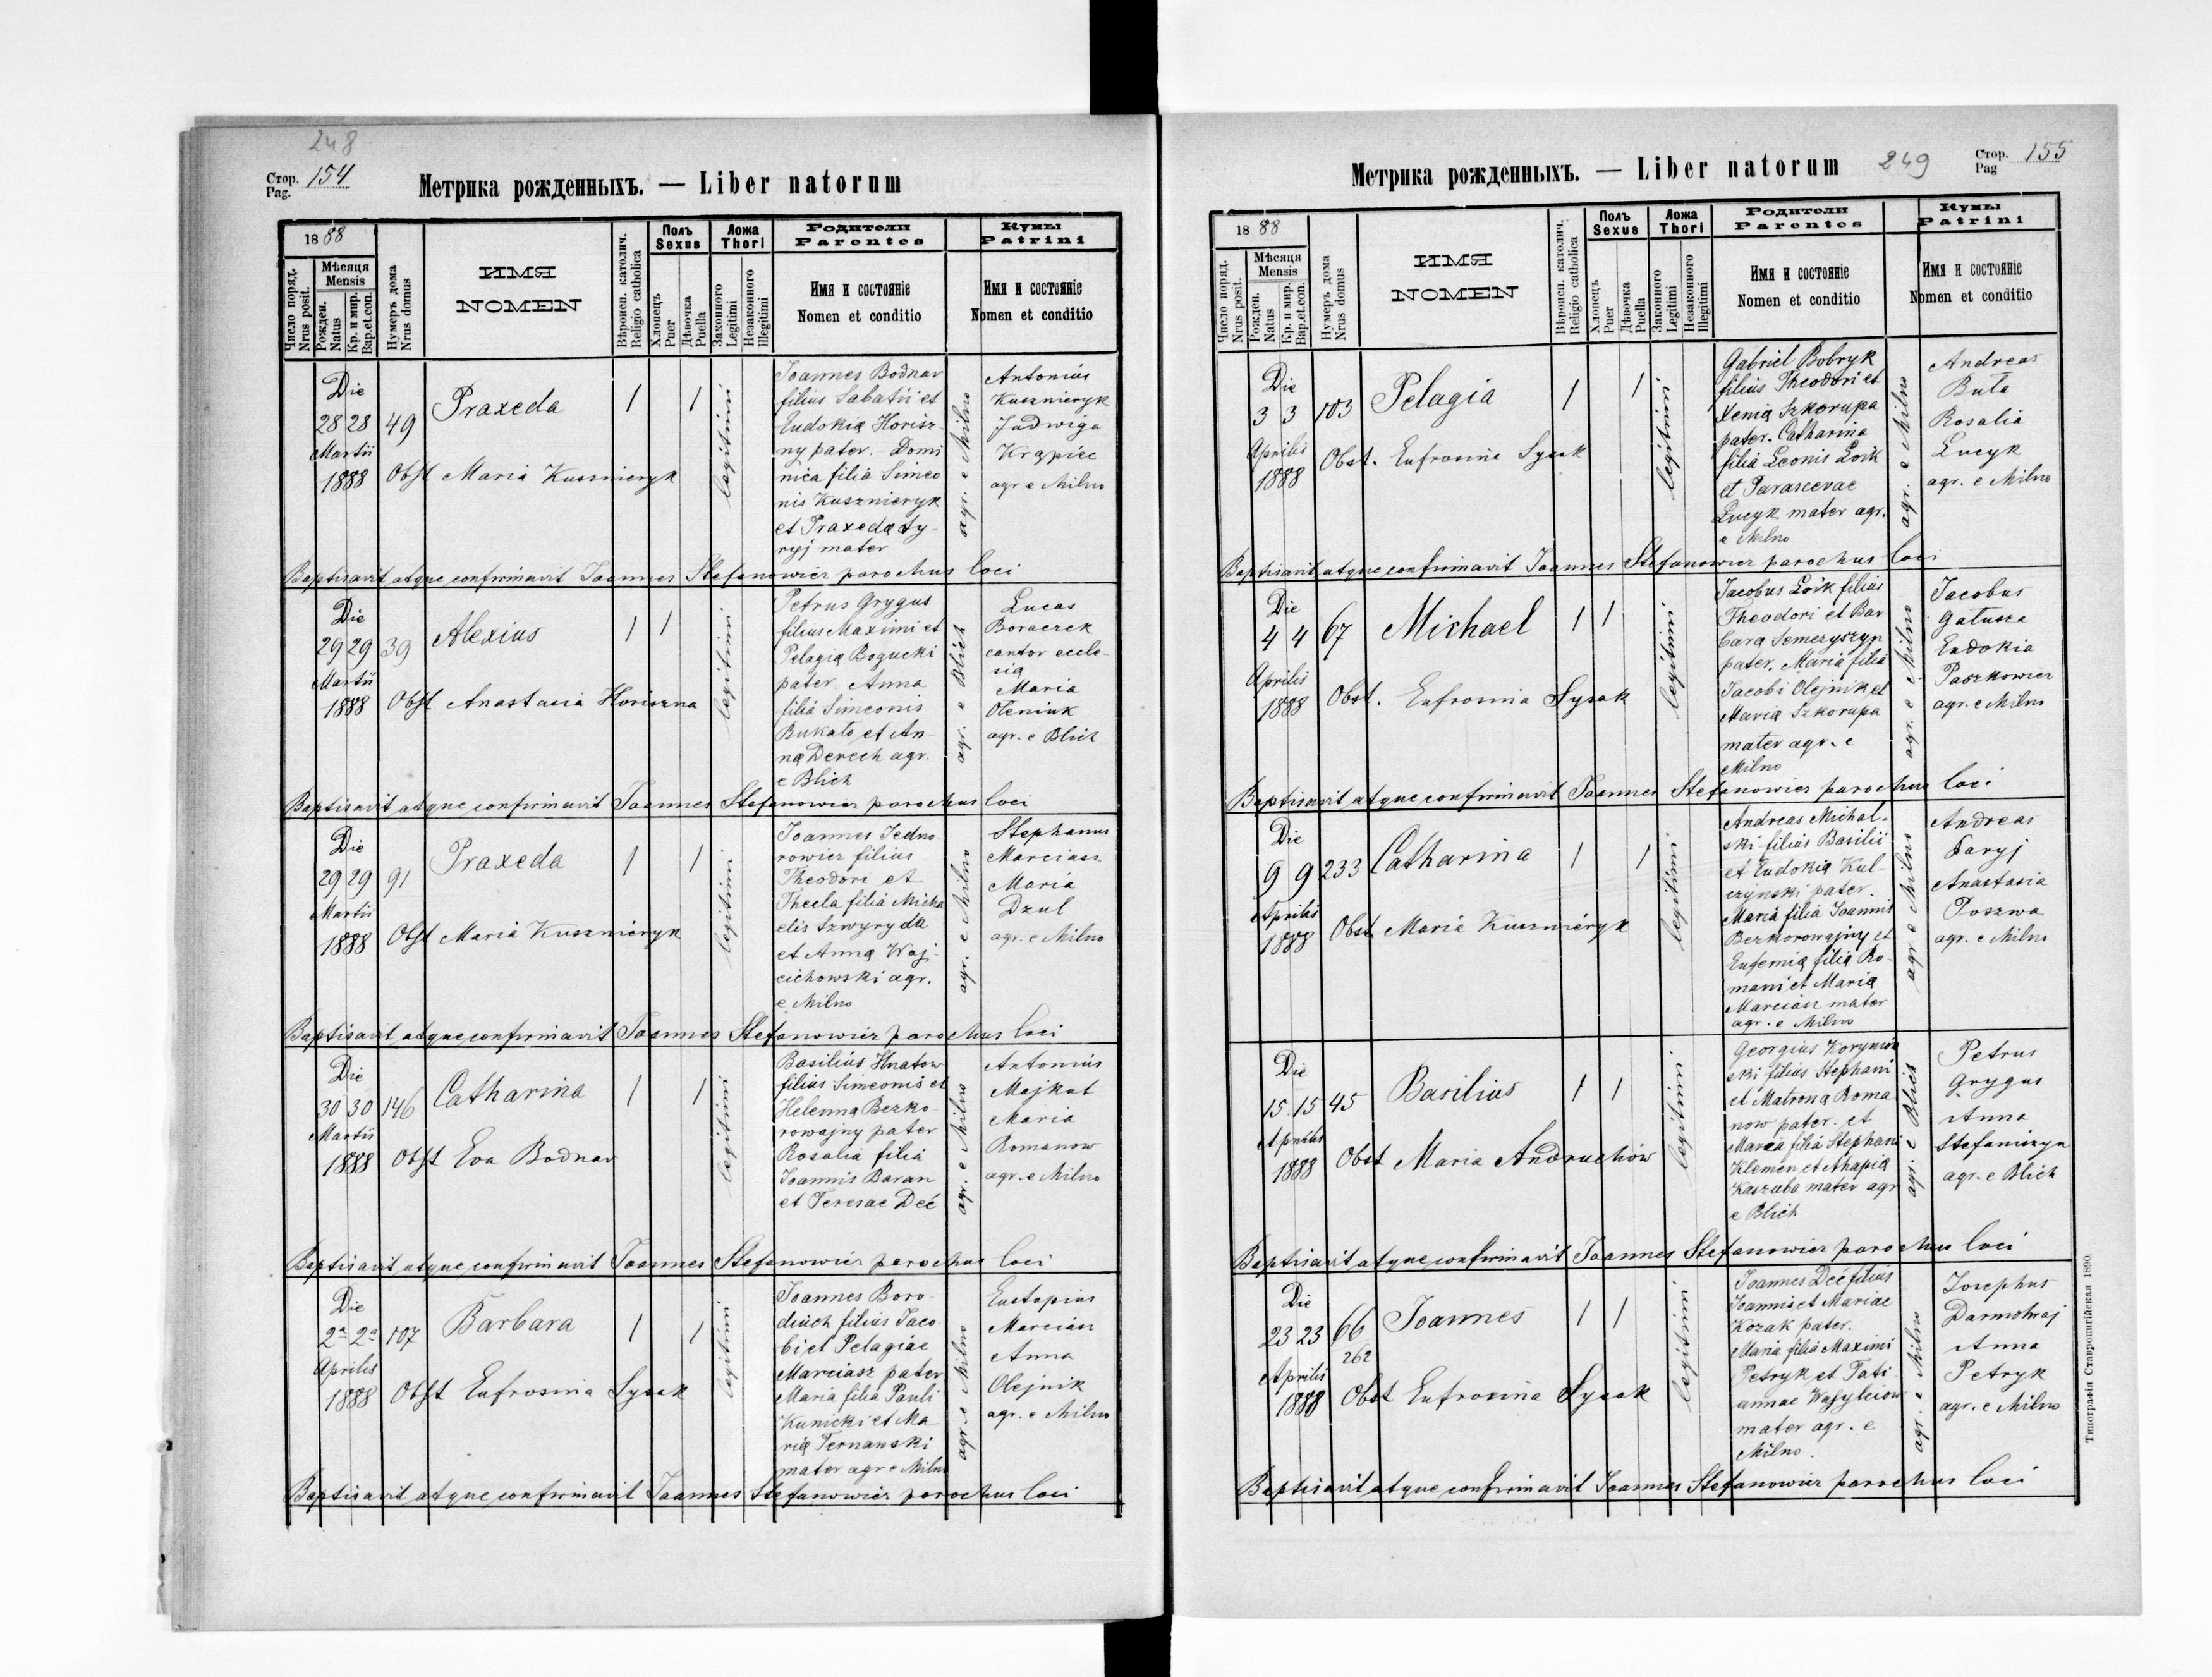 248
Стор. 154
Pag.
Метрика рожденныхъ. — Liber natorum
1888
Число поряд.
Nrus posit.
Мѣсяця
Mensis
Рожден.
Natus
Кр. и мир.
Bap.et.con.
Нумеръ дома
Nrus domus
ИМЯ
NOMEN
Вѣроисп. католич.
Religio catholica
Полъ
Sexus
Хлопецъ
Puer
Дѣвочка
Puella
Ложа
Thori
Законного
Legitimi
Незаконного
Illegitimi
Родители
Parentes
Имя и состоянiе
Nomen et conditio
Кумы
Patrini
Имя и состоянiе
Nomen et conditio
Die
28 28 49
Martii
1888
Praxeda
1 1
legitimi
Obst Maria Kusznieryk
Joannes Bodnar
filius Sabatii et
Eudokią Horisz
ny pater. Domi
nica filia Simeo
nis Kusznieryk
et Praxedą Ty-
ryj mater
agr. e Milno
Antonius
Kusznieryk
Jadwiga
Krąpiec
agr e Milno
Baptisavit atque confirmavit Joannes Stefanowicz parochus loci
Die
29 29 39
Martii
1888
Alexius
1 1
legitimi
Obst Anastasia Horiszna
Petrus Grygus
filius Maximi et
Pelagią Bogucki
pater Anna
filia Simeonis
Bukało et An-
ną Derech agr.
e Blich
agr. e Blich
Lucas
Boraczek
cantor eccle-
sią
Maria
Oleniuk
agr. e Blich
Baptisavit atque confirmavit Joannes Stefanowicz parochus loci
Die
29 29 91
Martii
1888
Praxeda
1 1
legitimi
Obst Maria Kusznieryk
Joannes Jedno
rowicz filius
Theodori et
Thecla filia Micha
elis Szwyryda
et Anną Woj-
cichowski agr.
e Milno
agr. e Milno
Stephanus
Marciasz
Maria
Dzul
agr. e Milno
Baptisavit atque confirmavit Joannes Stefanowicz parochus loci
Die
30 30 146
Martii
1888
Catharina
1 1
legitimi
Obst Eva Bodnar
Basilius Hnatow
filius Simeonis et
Helenną Bezko
rowajny pater
Rosalia filia
Joannis Baran
et Teresae Deć
agr. e Milno
Antonius
Majkut
Maria
Romanow
agr. e Milno
Baptisavit atque confirmavit Joannes Stefanowicz parochus loci
Die
2a 2a 107
Aprilis
1888
Barbara
1 1
legitimi
Obst Eufrosina Sysak
Joannes Boro
diuch filius Jaco
bi et Pelagiae
Marciasz pater
Maria filia Pauli
Kunicki et Ma
rią Ternawski
mater agr e Milno
agr. e Milno
Eustapius
Marciasz
Anna
Olejnik
agr. e Milno
Baptisavit atque confirmavit Joannes Stefanowicz parochus loci
Метрика рожденныхъ. — Liber natorum
249
Стор. 155
Pag
1888
Число поряд.
Nrus posit.
Мѣсяця
Mensis
Рожден.
Natus
Кр. и мир.
Bap.et.con.
Нумеръ дома
Nrus domus
ИМЯ
NOMEN
Вѣроисп. католич.
Religio catholica
Полъ
Sexus
Хлопецъ
Puer
Дѣвочка
Puella
Ложа
Thori
Законного
Legitimi
Незаконного
Illegitimi
Родители
Parentes
Имя и состоянiе
Nomen et conditio
Кумы
Patrini
Имя и состоянiе
Nomen et conditio
Die
3 3 103
Aprilis
1888
Pelagia
1 1
legitimi
Obst. Eufrosina Sysak
Gabriel Bobryk
filius Theodori et
Xenią Szkorupa
pater. Catharina
filia Leonis Loik
et Parascevae
Lucyk mater agr.
e Milno
agr. e Milno
Andreas
Buła
Rosalia
Lucyk
agr. e Milno
Baptisavit atque confirmavit Joannes Stefanowicz parochus loci
Die
4 4 67
Aprilis
1888
Michael
1 1
legitimi
Obst. Eufrosina Sysak
Jacobus Loik filius
Theodori et Bar
barą Semczyszyn
pater. Maria filia
Jacobi Olejnik et
Marią Szkorupa
mater agr. e
Milno
agr. e Milno
Jacobus
Gałusza
Eudokia
Paszkowicz
agr. e Milno
Baptisavit atque confirmavit Joannes Stefanowicz parochus loci
Die
9 9 233
Aprilis
1888
Catharina
1 1
legitimi
Obst Maria Kusznieryk
Andreas Michal-
ski filius Basilii
et Eudokią Kul-
czynski pater.
Maria filia Joannis
Bezkorowajny et
Eufemią filią Ro-
mani et Marią
Marciasz mater
agr. e Milno
agr e Milno
Andreas
Saryj
Anastasia
Poszwa
agr. e Milno
Die
15 15 45
Aprilis
1888
Basilius
1 1
legitimi
Obst Maria Andruchów
Georgius
ski filius Stephani
et Matroną Roma
now pater. et
Maria filia Stephani
Klemen et Ahapią
Kaszuba mater agr
e Blich
agr. e Blich
Petrus
Grygus
Anna
Stefaniszyn
agr. e Blich
Baptisavit atque confirmavit Joannes Stefanowicz parochus loci
Die
23 23 66
262
Aprilis
1888
Joannes
1 1
legitimi
Obst Eufrosina Sysak
Joannes Deć filius
Joannis et Mariae
Kozak pater.
Maria filia Maximi
Petryk et Tati
annae Wasylciow
mater agr. e
Milno.
agr. e Milno
Josephus
Darmohraj
Anna
Petryk
agr. e Milno
Baptisavit atque confirmavit Joannes Stefanowicz parochus loci
Типографiя Ставропигiйская 1890